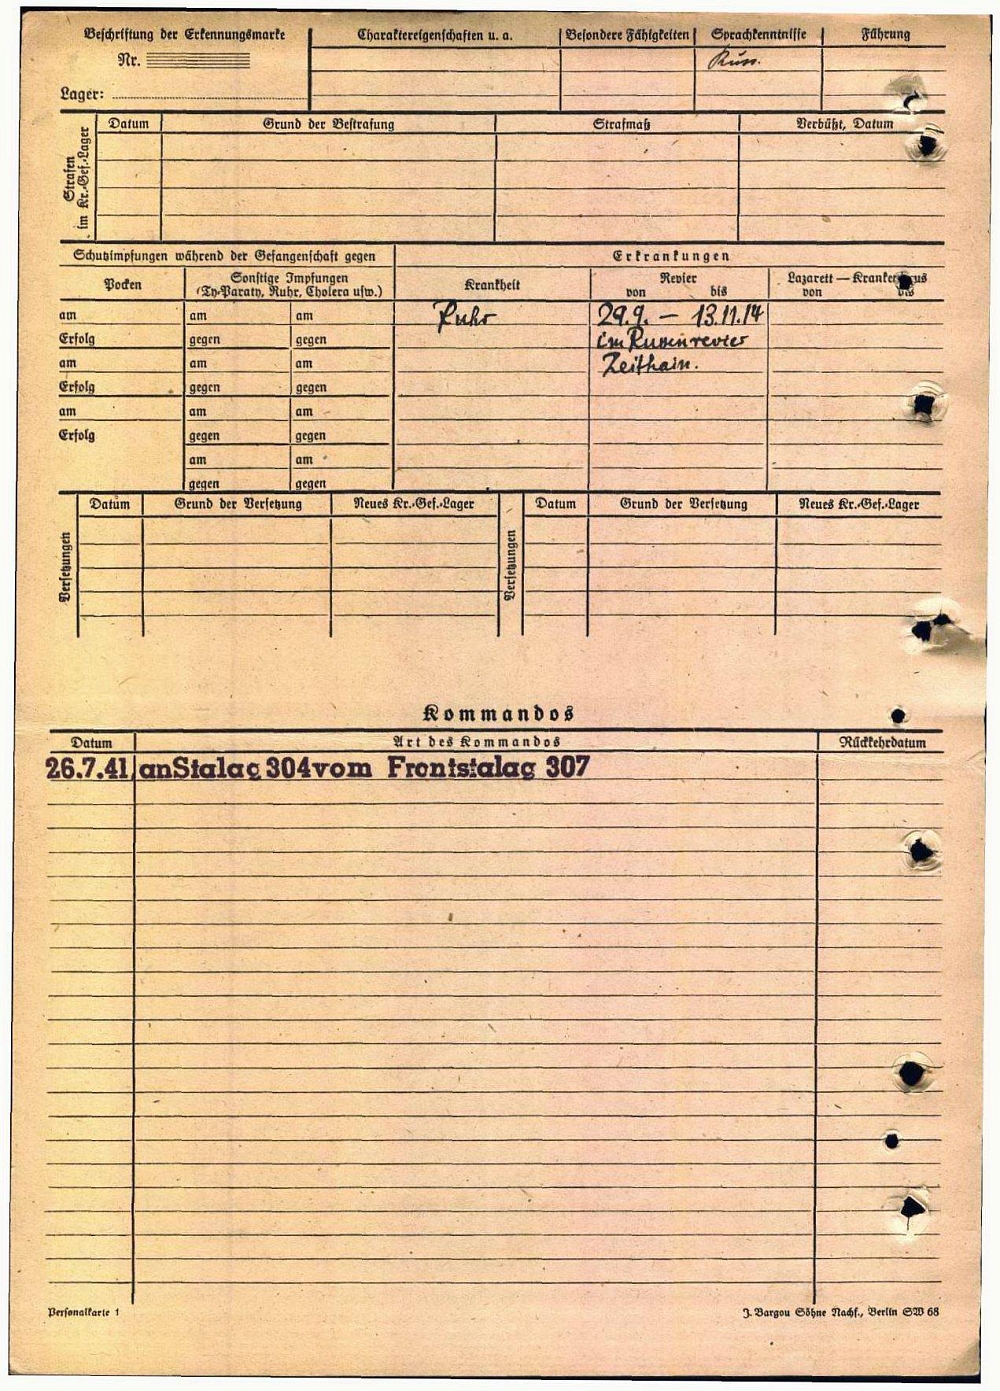 Beschriftung der Erkennungsmarke Charaktereigenschaften u. a. Besondere Fähigkeiten Sprachkenntnisse Führung
Nr. Russ.
Lager:
Strafen im Kr.-Gef.-Lager
Datum Grund der Bestrafung Strafmaß Verbüßt, Datum
Schutzimpfungen während der Gefangenschaft gegen Erkrankungen
Pocken Sonstige Impfungen Krankheit Revier Lazarett — Krankenhaus
(Ty-Paraty, Ruhr, Cholera usw.) von bis von bis
am am am Ruhr 29.9. — 13.11.14
Erfolg gegen gegen im Russenrevier
am am am Zeithain.
Erfolg gegen gegen
am am am
Erfolg gegen gegen
am am
gegen gegen
Versetzungen Datum Grund der Versetzung Neues Kr.-Gef.-Lager Versetzungen Datum Grund der Versetzung Neues Kr.-Gef.-Lager
Kommandos
Datum Art des Kommandos Rückkehrdatum
26.7.41 an Stalag 304 vom Frontstalag 307
Personalkarte 1 J. Bargou Söhne Nachf., Berlin SW 68